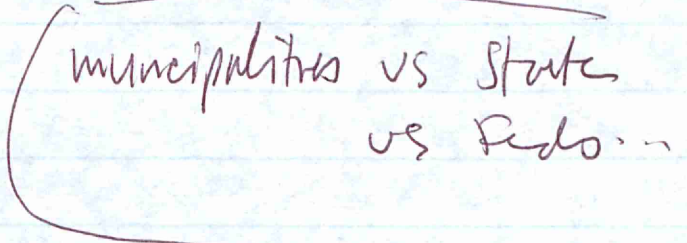 (municipalities vs States
vs Feds...